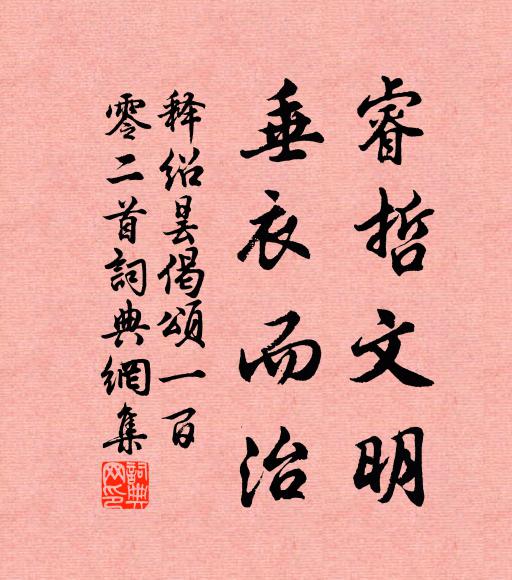 睿哲文明
垂衣而治
释绍昙偈颂一百
零二首詞典網集
詞典
网印